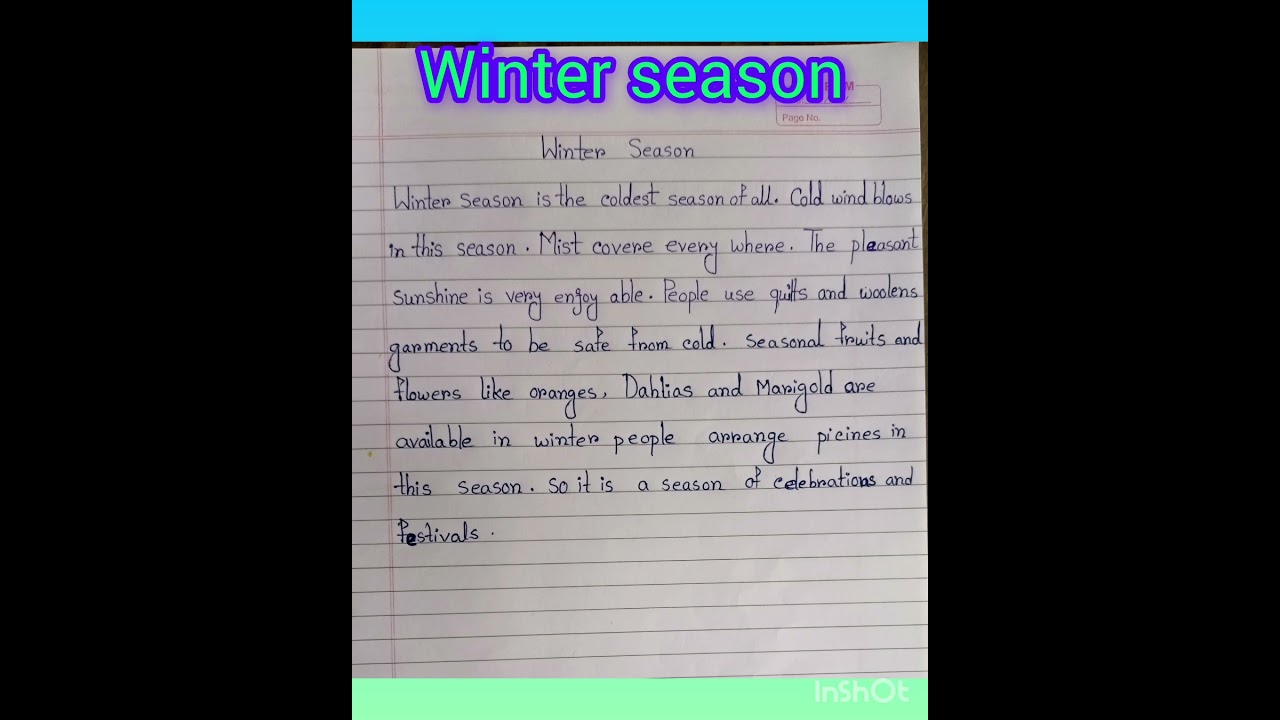 Winter season
Page No.
Winter Season
Winter Season is the coldest season of all. Cold wind blows
in this season. Mist covere every where. The pleasant
sunshine is very enjoy able. People use quilts and woolens
garments to be safe from cold. seasonal fruits and
flowers like oranges, Dahlias and Marigold are
available in winter people arrange picines in
this season. So it is a season of celebrations and
festivals.
InShOt